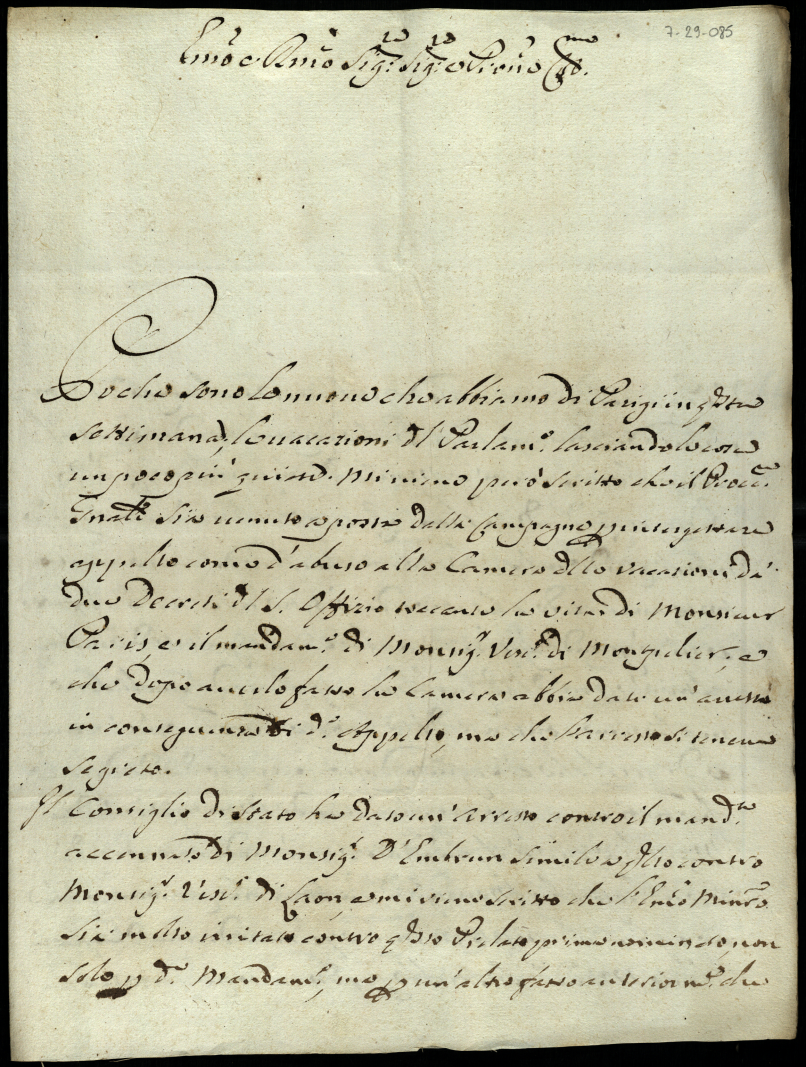 7-29-085
Em̃o e Rm̃o Sig:re Sig:re e P̃rone Col.mo
Poche sono le nuove che abbiamo di Parigi in q̃sta
settimana, le vacazioni d'l Parlam:o lasciando le cose
un poco più quiete. Mi viene però scritto che il Proc:re
Gñale sia venuto a posta dalla Campagna p interpettare
appello come d'abuso alla Camera d'lle vacazioni da'
due Decreti d'l S. Offizio toccante la vita di Monsieur
Paris, e il mandam:o di Monsig:r Vesc:o di Mompelier, e
che dopo averlo fatto la Camera abbia dato un'arresto
in conseguenza di d:o Appello, ma che l'arresto si teneva
segreto.
Il Consiglio di Stato ha dato un'arresto contro il mand:to
accennato di Monsig:r D'Embrun simile a q̃llo contro
Monsig:r Vesc:o di Laon, e mi viene scritto che l'Em̃o Minr̃o
sia molto irritato contro q̃sto Prelato primo nominato, non
solo p d:o Mandam:o, ma p un'altro fatto anterior:e che